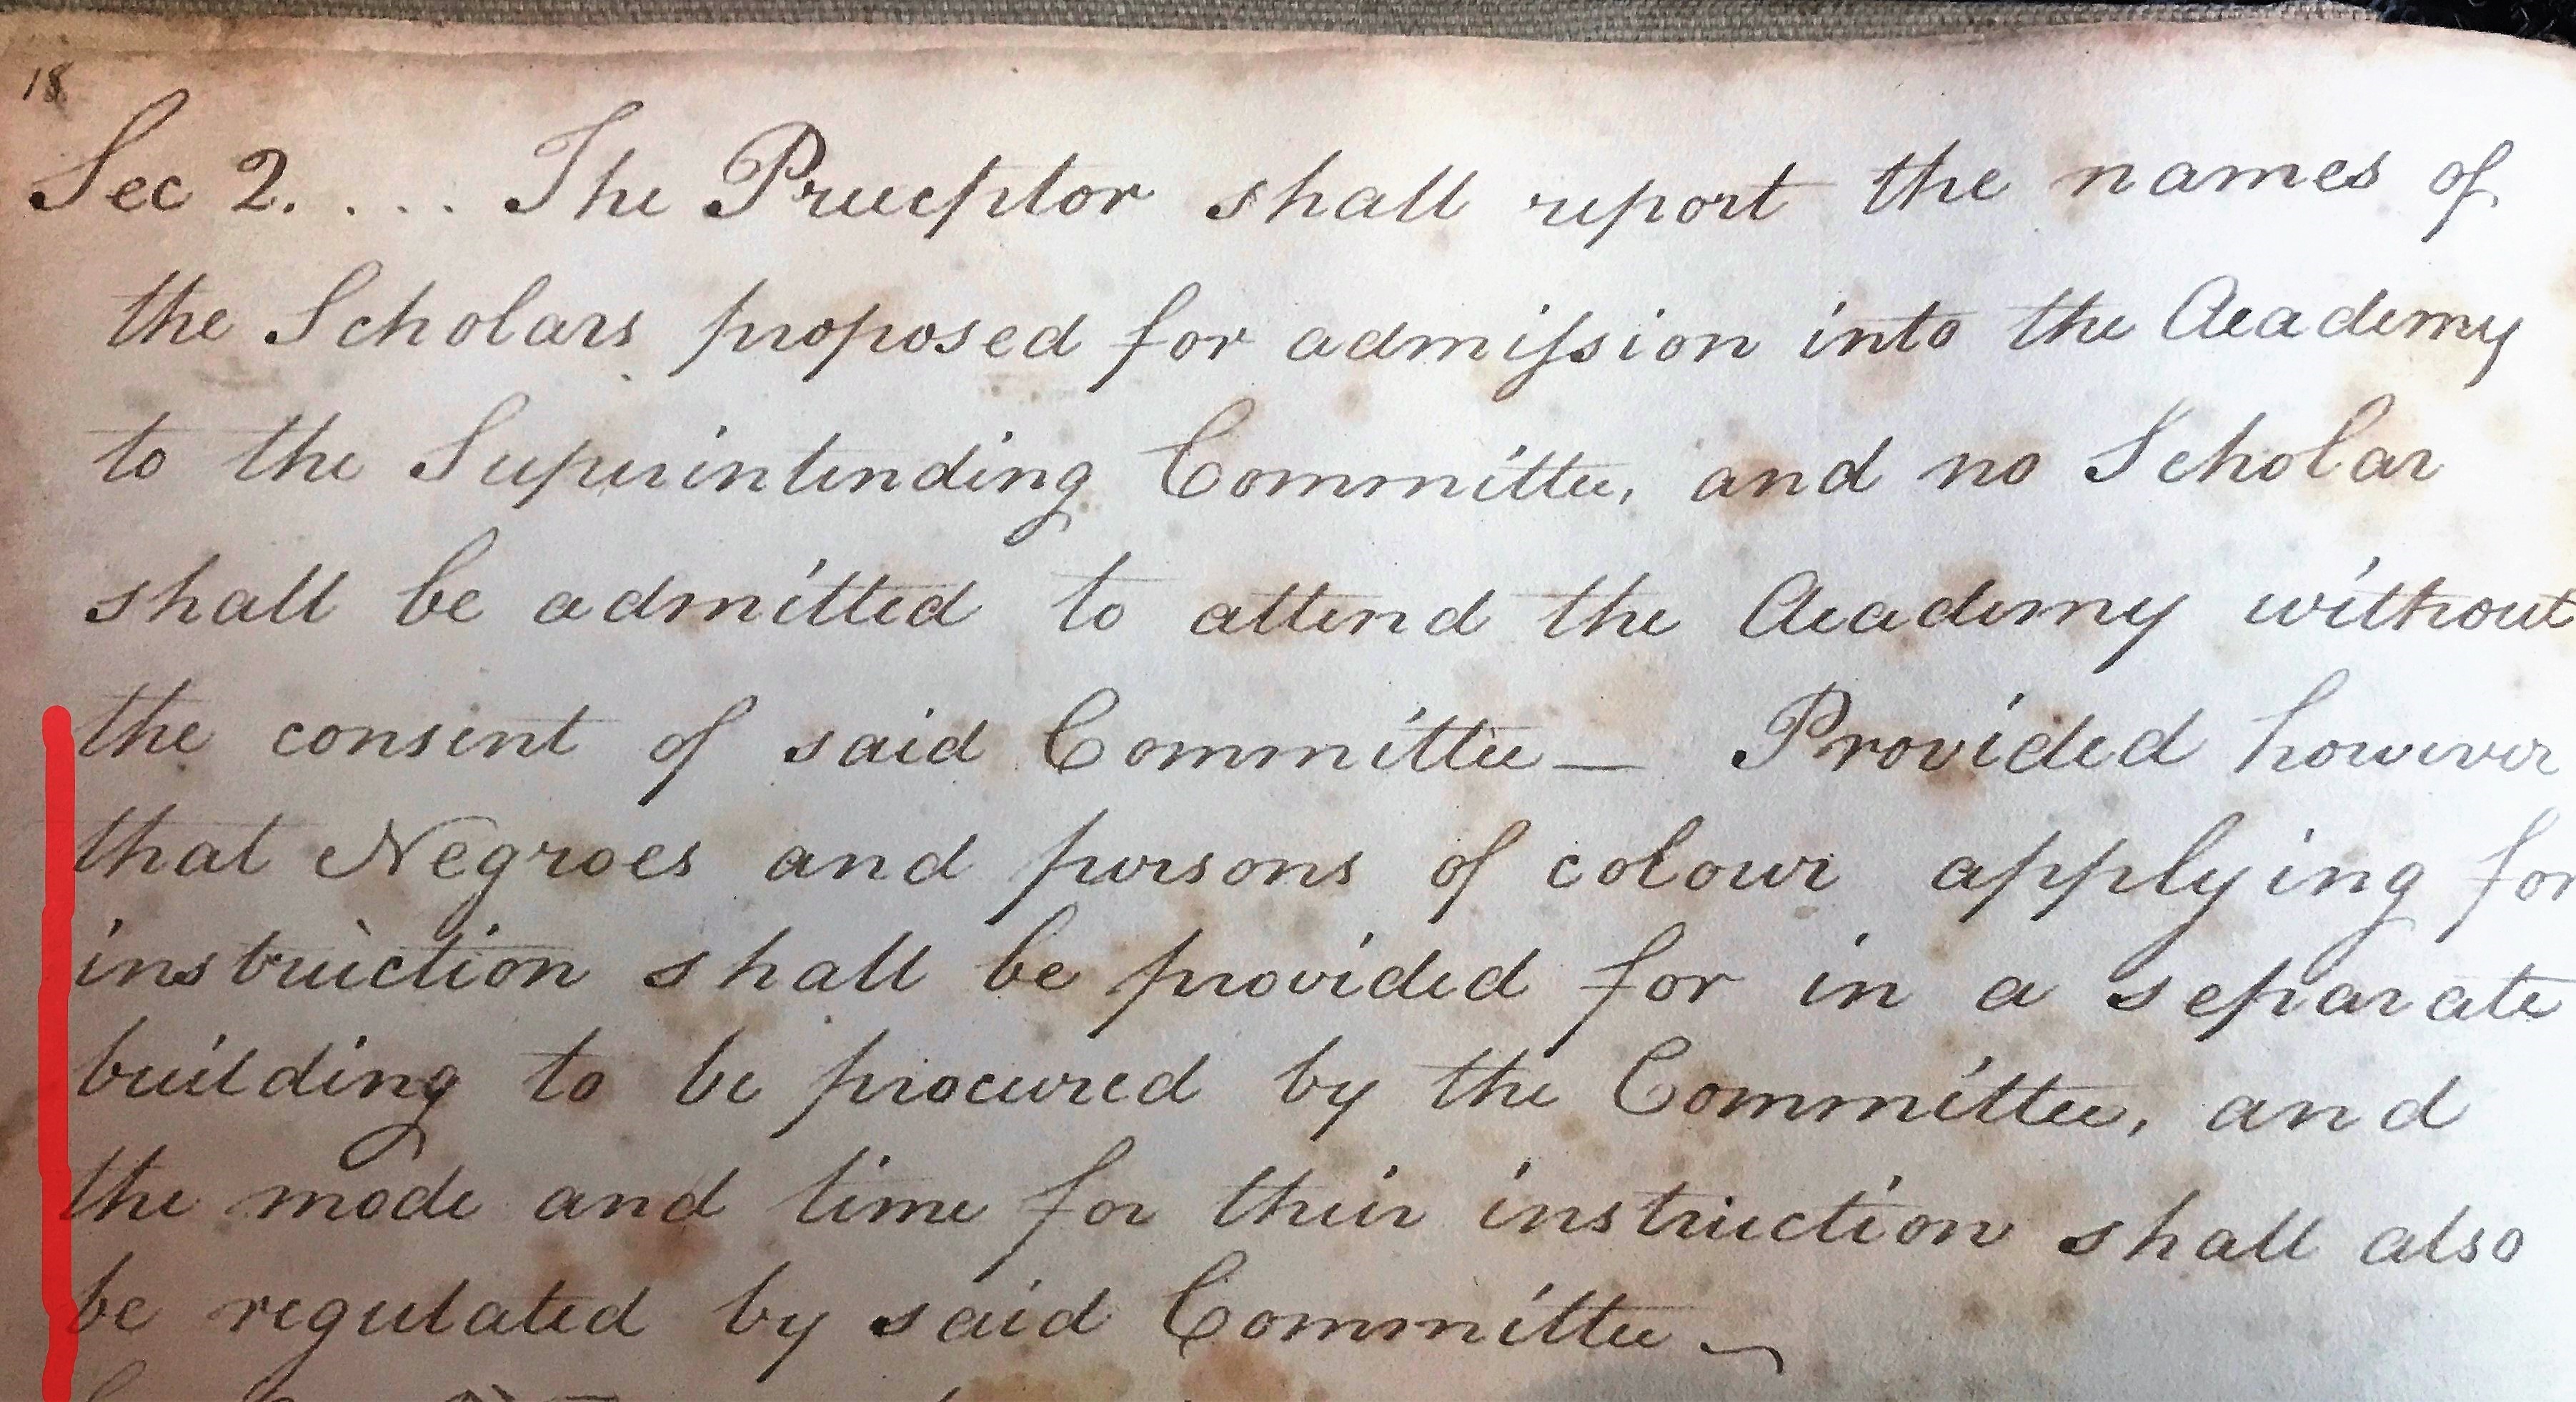 18
Sec 2. . . . The Preceptor shall report the names of
the Scholars proposed for admiſsion into the Academy
to the Superintending Committee, and no Scholar
shall be admitted to attend the Academy without
the consent of said Committee — Provided however
that Negroes and persons of colour applying for
instruction shall be provided for in a separate
building to be procured by the Committee, and
the mode and time for their instruction shall also
be regulated by said Committee